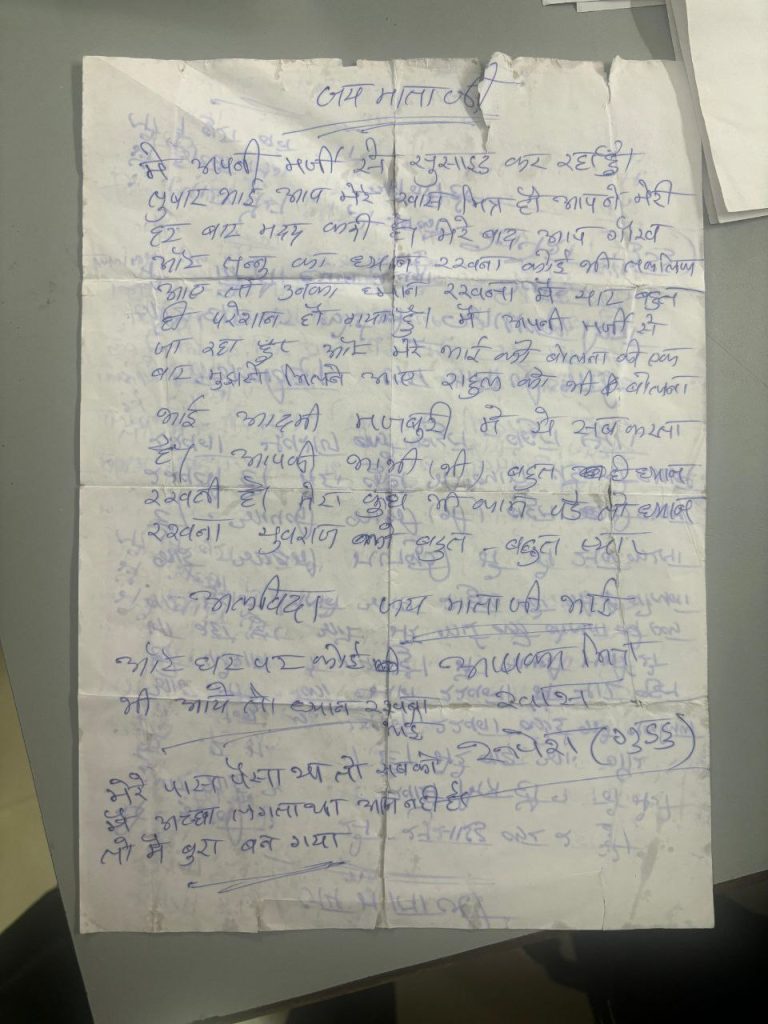 जय माता जी
मे अपनी मर्जी से सुसाइड कर रहा हुँ।
तुषार भाई आप मेरे खास मित्र हो आपने मेरी
हर बार मदद करी है। मेरे बाद आप
और तन्नु का ध्यान रखना कोई भी तकलिफ
आए तो उनका ध्यान रखना मै यार बहुत
ही परेशान हो गया हुँ। मै अपनी मर्जी से
जा रहा हुँ और मेरे भाई को बोलना की एक
बार मुझसे मिलने आए राहुल को भी बोलना
भाई आदमी मजबुरी मे ये सब करता
है। आपकी भाभी (भी) बहुत ही ध्यान
रखती है। मेरा कुछ भी काम पडे तो ध्यान
रखना युवराज को बहुत बहुत प्यार
अलविदा जय माता जी भाई
और घर पर कोई आपका मित्र
भी आये तो ध्यान रखना खास
भाई
रुपेश (गुड्डु)
मेरे पास पैसा था तो सबको
मै अच्छा लगता था आज नही है
तो मै बुरा बन गया